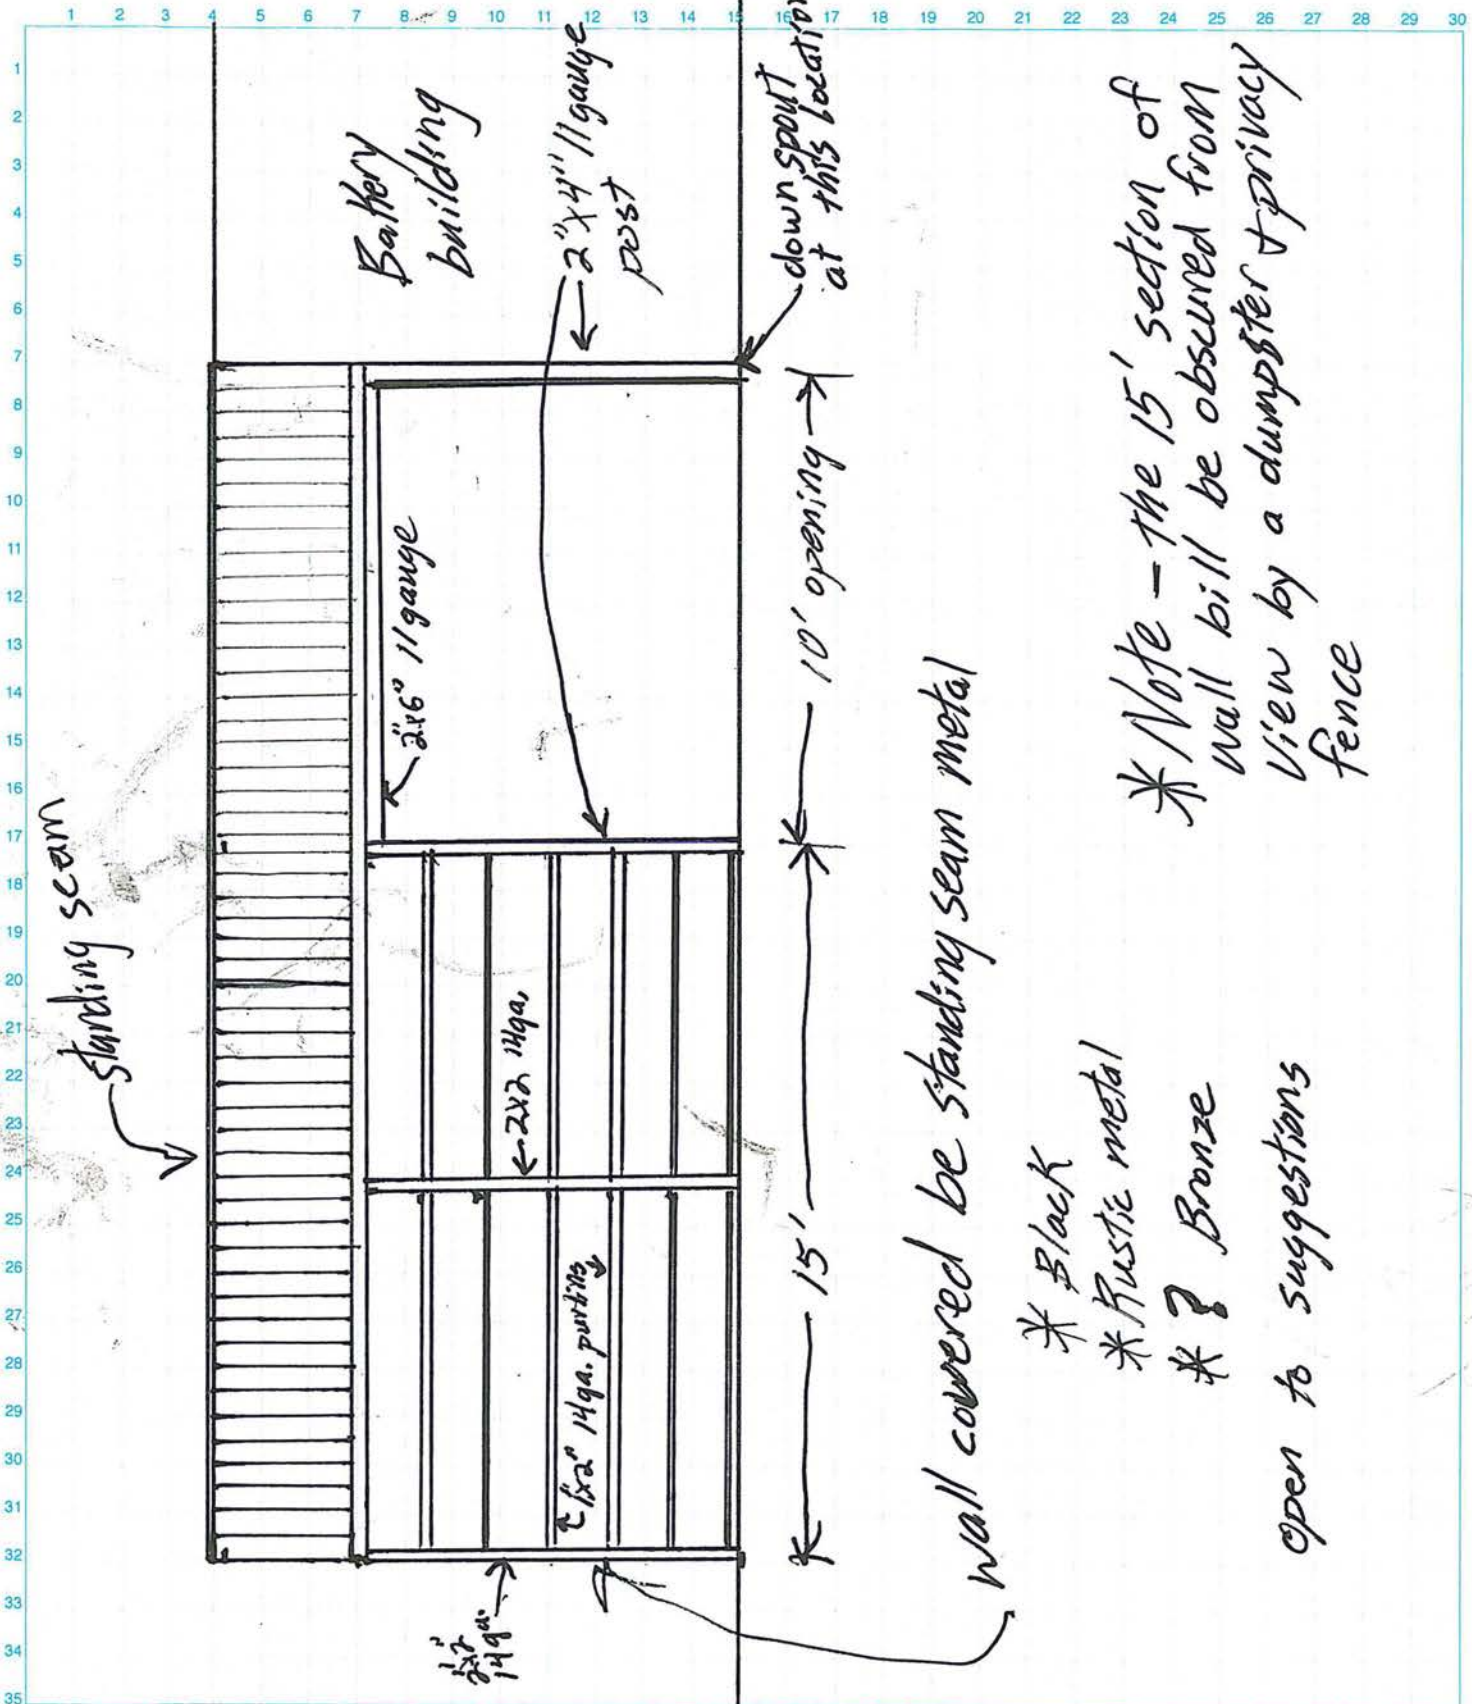 1 2 3 4 5 6 7 8 9 10 11 12 13 14 15 16 17 18 19 20 21 22 23 24 25 26 27 28 29 30
1
2
3
4
5
6
7
8
9
10
11
12
13
14
15
16
17
18
19
20
21
22
23
24
25
26
27
28
29
30
31
32
33
34
35
standing seam
Battery
building
2"x4" 11 gauge
post
down spout
at this location
2"x6" 11 gauge
2x2 14ga.
1"x2" 14ga. purlins
2"x2"
14ga.
15'
10' opening
wall covered be standing seam metal
* Black
* Rustic metal
* ? Bronze
open to suggestions
* Note - the 15' section of
wall bill be obscured from
View by a dumpster & privacy
fence